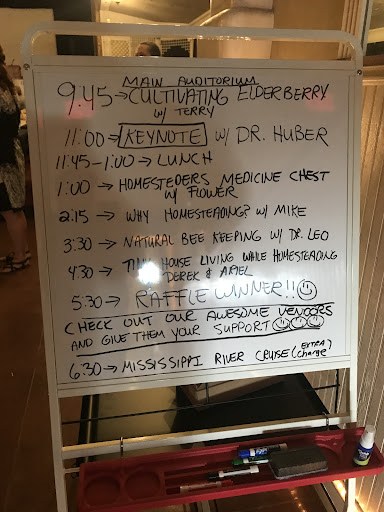 MAIN AUDITORIUM
9:45 → CULTIVATING ELDERBERRY
w/ TERRY
11:00 → KEYNOTE w/ DR. HUBER
11:45-1:00 → LUNCH
1:00 → HOMESTEDERS MEDICINE CHEST
w/ FLOWER
2:15 → WHY HOMESTEADING? w/ MIKE
3:30 → NATURAL BEE KEEPING w/ DR. LEO
4:30 → TINY HOUSE LIVING WHILE HOMESTEADING
DEREK & ARIEL
5:30 → RAFFLE WINNER!!
CHECK OUT OUR AWESOME VENDORS
AND GIVE THEM YOUR SUPPORT
6:30 → MISSISSIPPI RIVER CRUISE (EXTRA
charge)